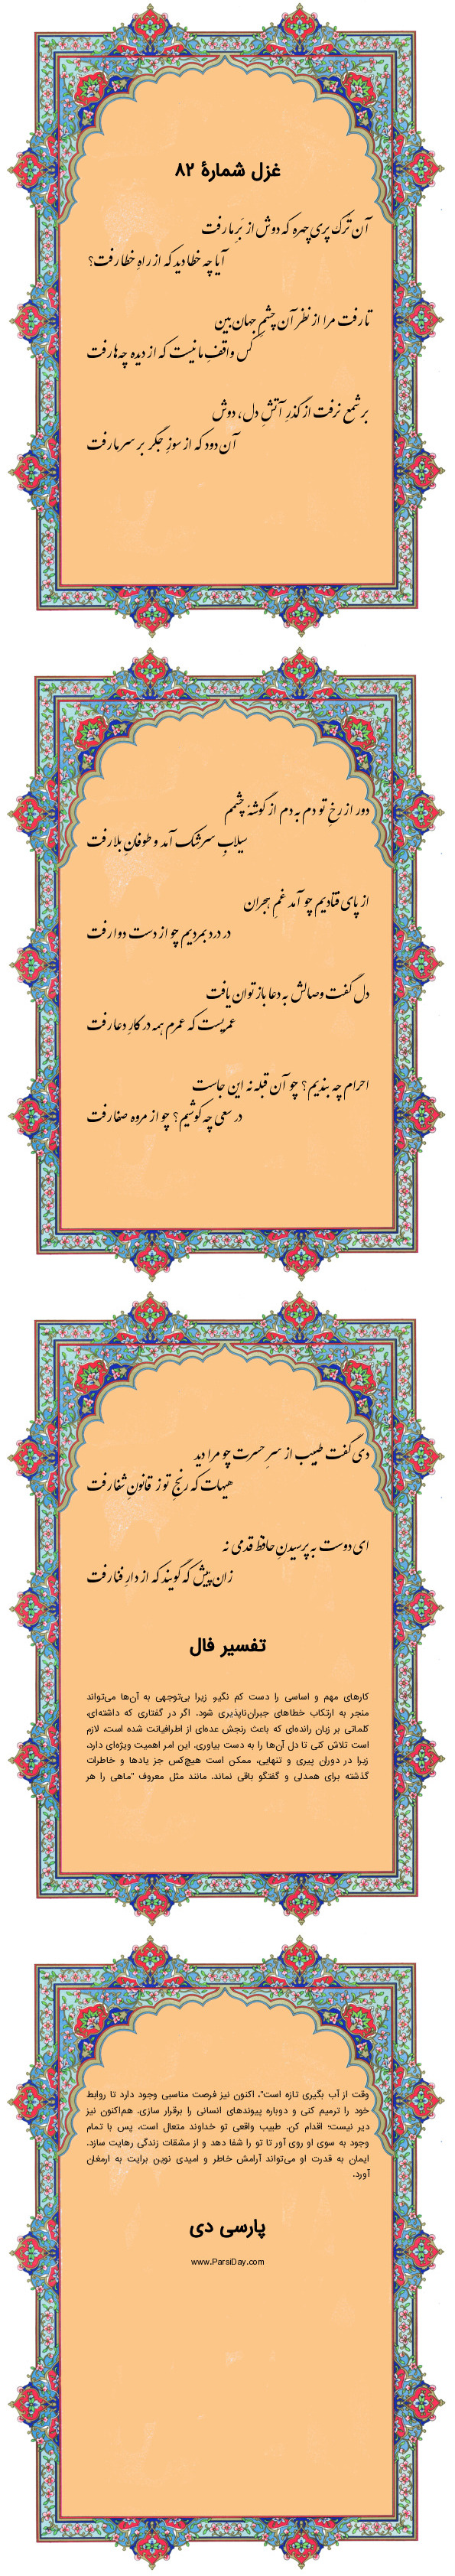 غزل شمارهٔ ۸۲
آن ترک پری چهره که دوش از برِ ما رفت
آیا چه خطا دید که از راهِ خطا رفت؟
تا رفت مرا از نظر آن چشمِ جهان بین
کس واقفِ ما نیست که از دیده چه‌ها رفت
بر شمع نرفت از گذرِ آتشِ دل، دوش
آن دود که از سوزِ جگر بر سر ما رفت
دور از رخِ تو دم به دم از گوشهٔ چشمم
سیلابِ سرشک آمد و طوفانِ بلا رفت
از پای فتادیم چو آمد غمِ هجران
در درد بمردیم چو از دست دوا رفت
دل گفت وصالش به دعا باز توان یافت
عمریست که عمرم همه در کارِ دعا رفت
احرام چه بندیم؟ چو آن قبله نه این جاست
در سعی چه کوشیم؟ چو از مروه صفا رفت
دی گفت طبیب از سرِ حسرت چو مرا دید
هیهات که رنجِ تو ز قانونِ شفا رفت
ای دوست به پرسیدنِ حافظ قدمی نه
زان پیش که گویند که از دارِ فنا رفت
تفسیر فال
کارهای مهم و اساسی را دست کم نگیر، زیرا بی‌توجهی به آن‌ها می‌تواند
منجر به ارتکاب خطاهای جبران‌ناپذیری شود. اگر در گفتاری که داشته‌ای،
کلماتی بر زبان رانده‌ای که باعث رنجش عده‌ای از اطرافیانت شده است، لازم
است تلاش کنی تا دل آن‌ها را به دست بیاوری. این امر اهمیت ویژه‌ای دارد،
زیرا در دوران پیری و تنهایی، ممکن است هیچ‌کس جز یادها و خاطرات
گذشته برای همدلی و گفتگو باقی نماند. مانند مثل معروف "ماهی را هر
وقت از آب بگیری تازه است"، اکنون نیز فرصت مناسبی وجود دارد تا روابط
خود را ترمیم کنی و دوباره پیوندهای انسانی را برقرار سازی. هم‌اکنون نیز
دیر نیست؛ اقدام کن. طبیب واقعی تو خداوند متعال است، پس با تمام
وجود به سوی او روی آور تا تو را شفا دهد و از مشقات زندگی رهایت سازد.
ایمان به قدرت او می‌تواند آرامش خاطر و امیدی نوین برایت به ارمغان
آورد.
پارسی دی
www.ParsiDay.com